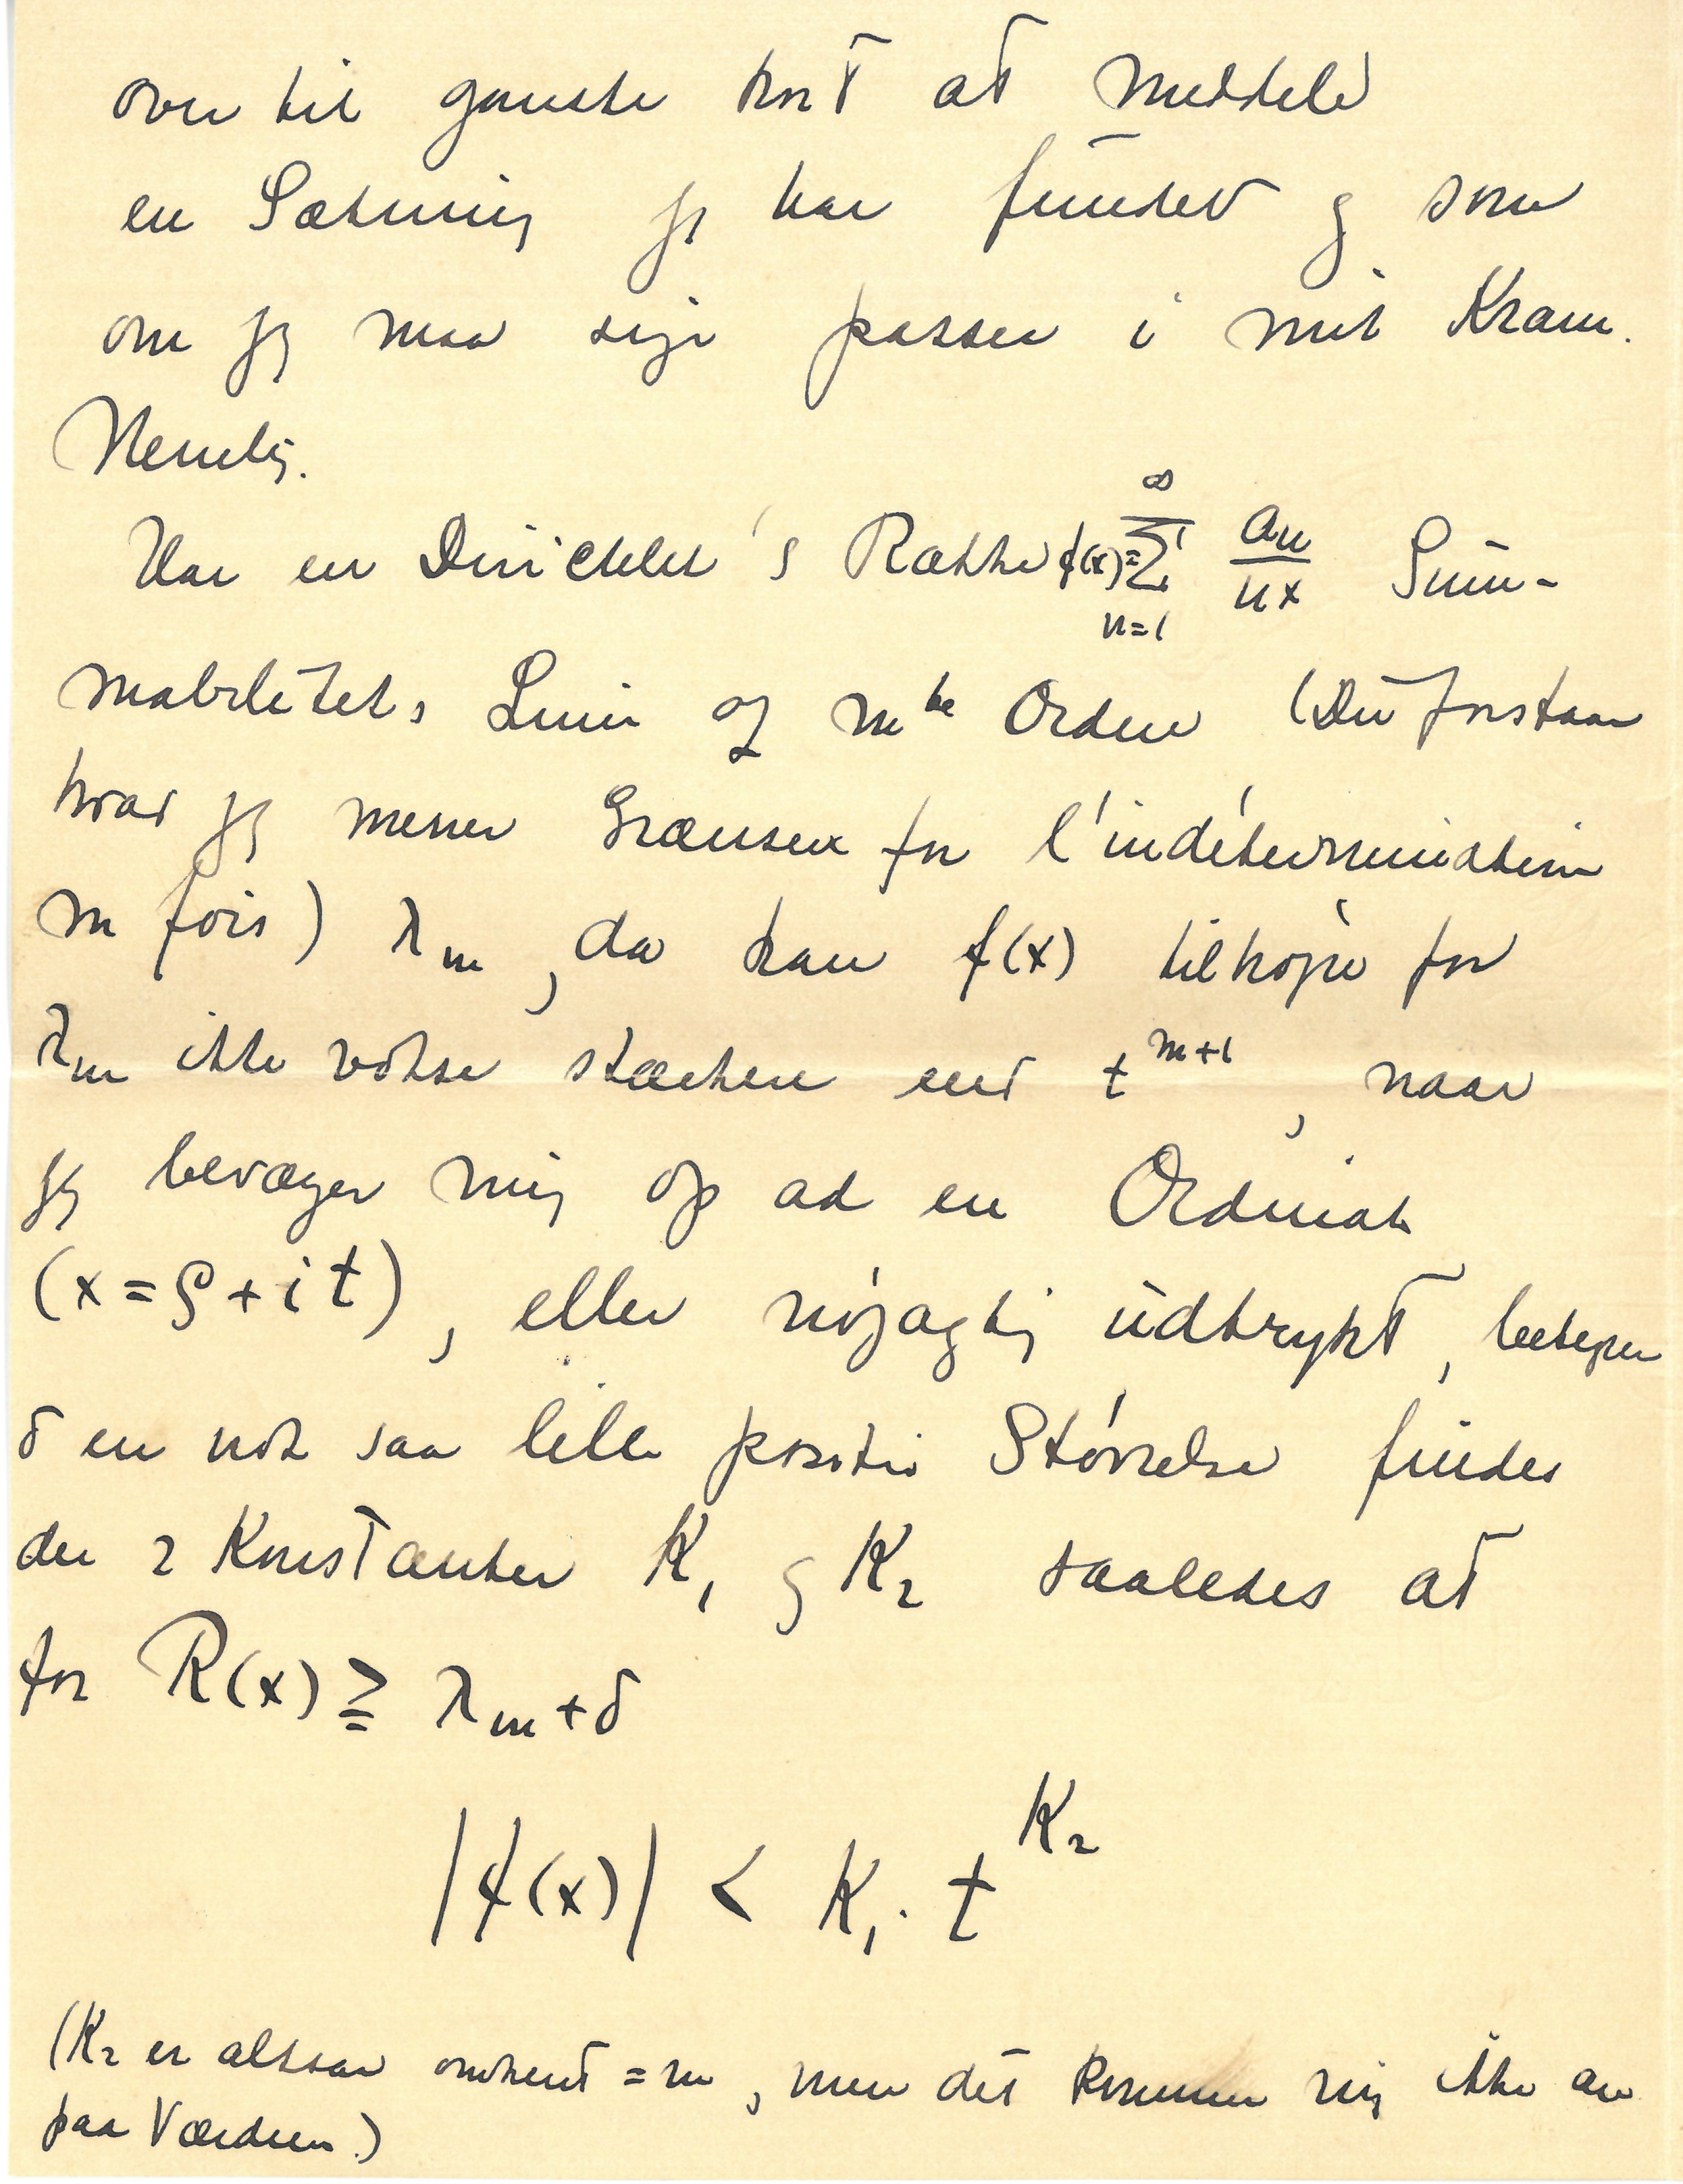 over til ganske kort at meddele
en Sætning jeg har fundet og som
om jeg maa sige passer i mit Kram.
Nemlig.
Har en Dirichlet's Række f(x)=∑_{n=1}^{∞} a_n/n^x Sum-
mabilitets Linie af m^te Orden (Du forstaar
hvad jeg mener Grænsen for l'indétermination
m fois) λ_m, da kan f(x) tilhøjre for
λ_m ikke vokse stærkere end t^{m+1}, naar
jeg bevæger mig op ad en Ordinat
(x=ρ+it), eller nøjagtig udtrykt, betegner
δ en nok saa lille positiv Størrelse findes
der 2 Konstanter K_1 og K_2 saaledes at
for R(x) ≧ λ_m+δ
|f(x)| < K_1 · t^{K_2}
(K_2 er altsaa omtrent = m, men det kommer mig ikke an
paa Værdien.)